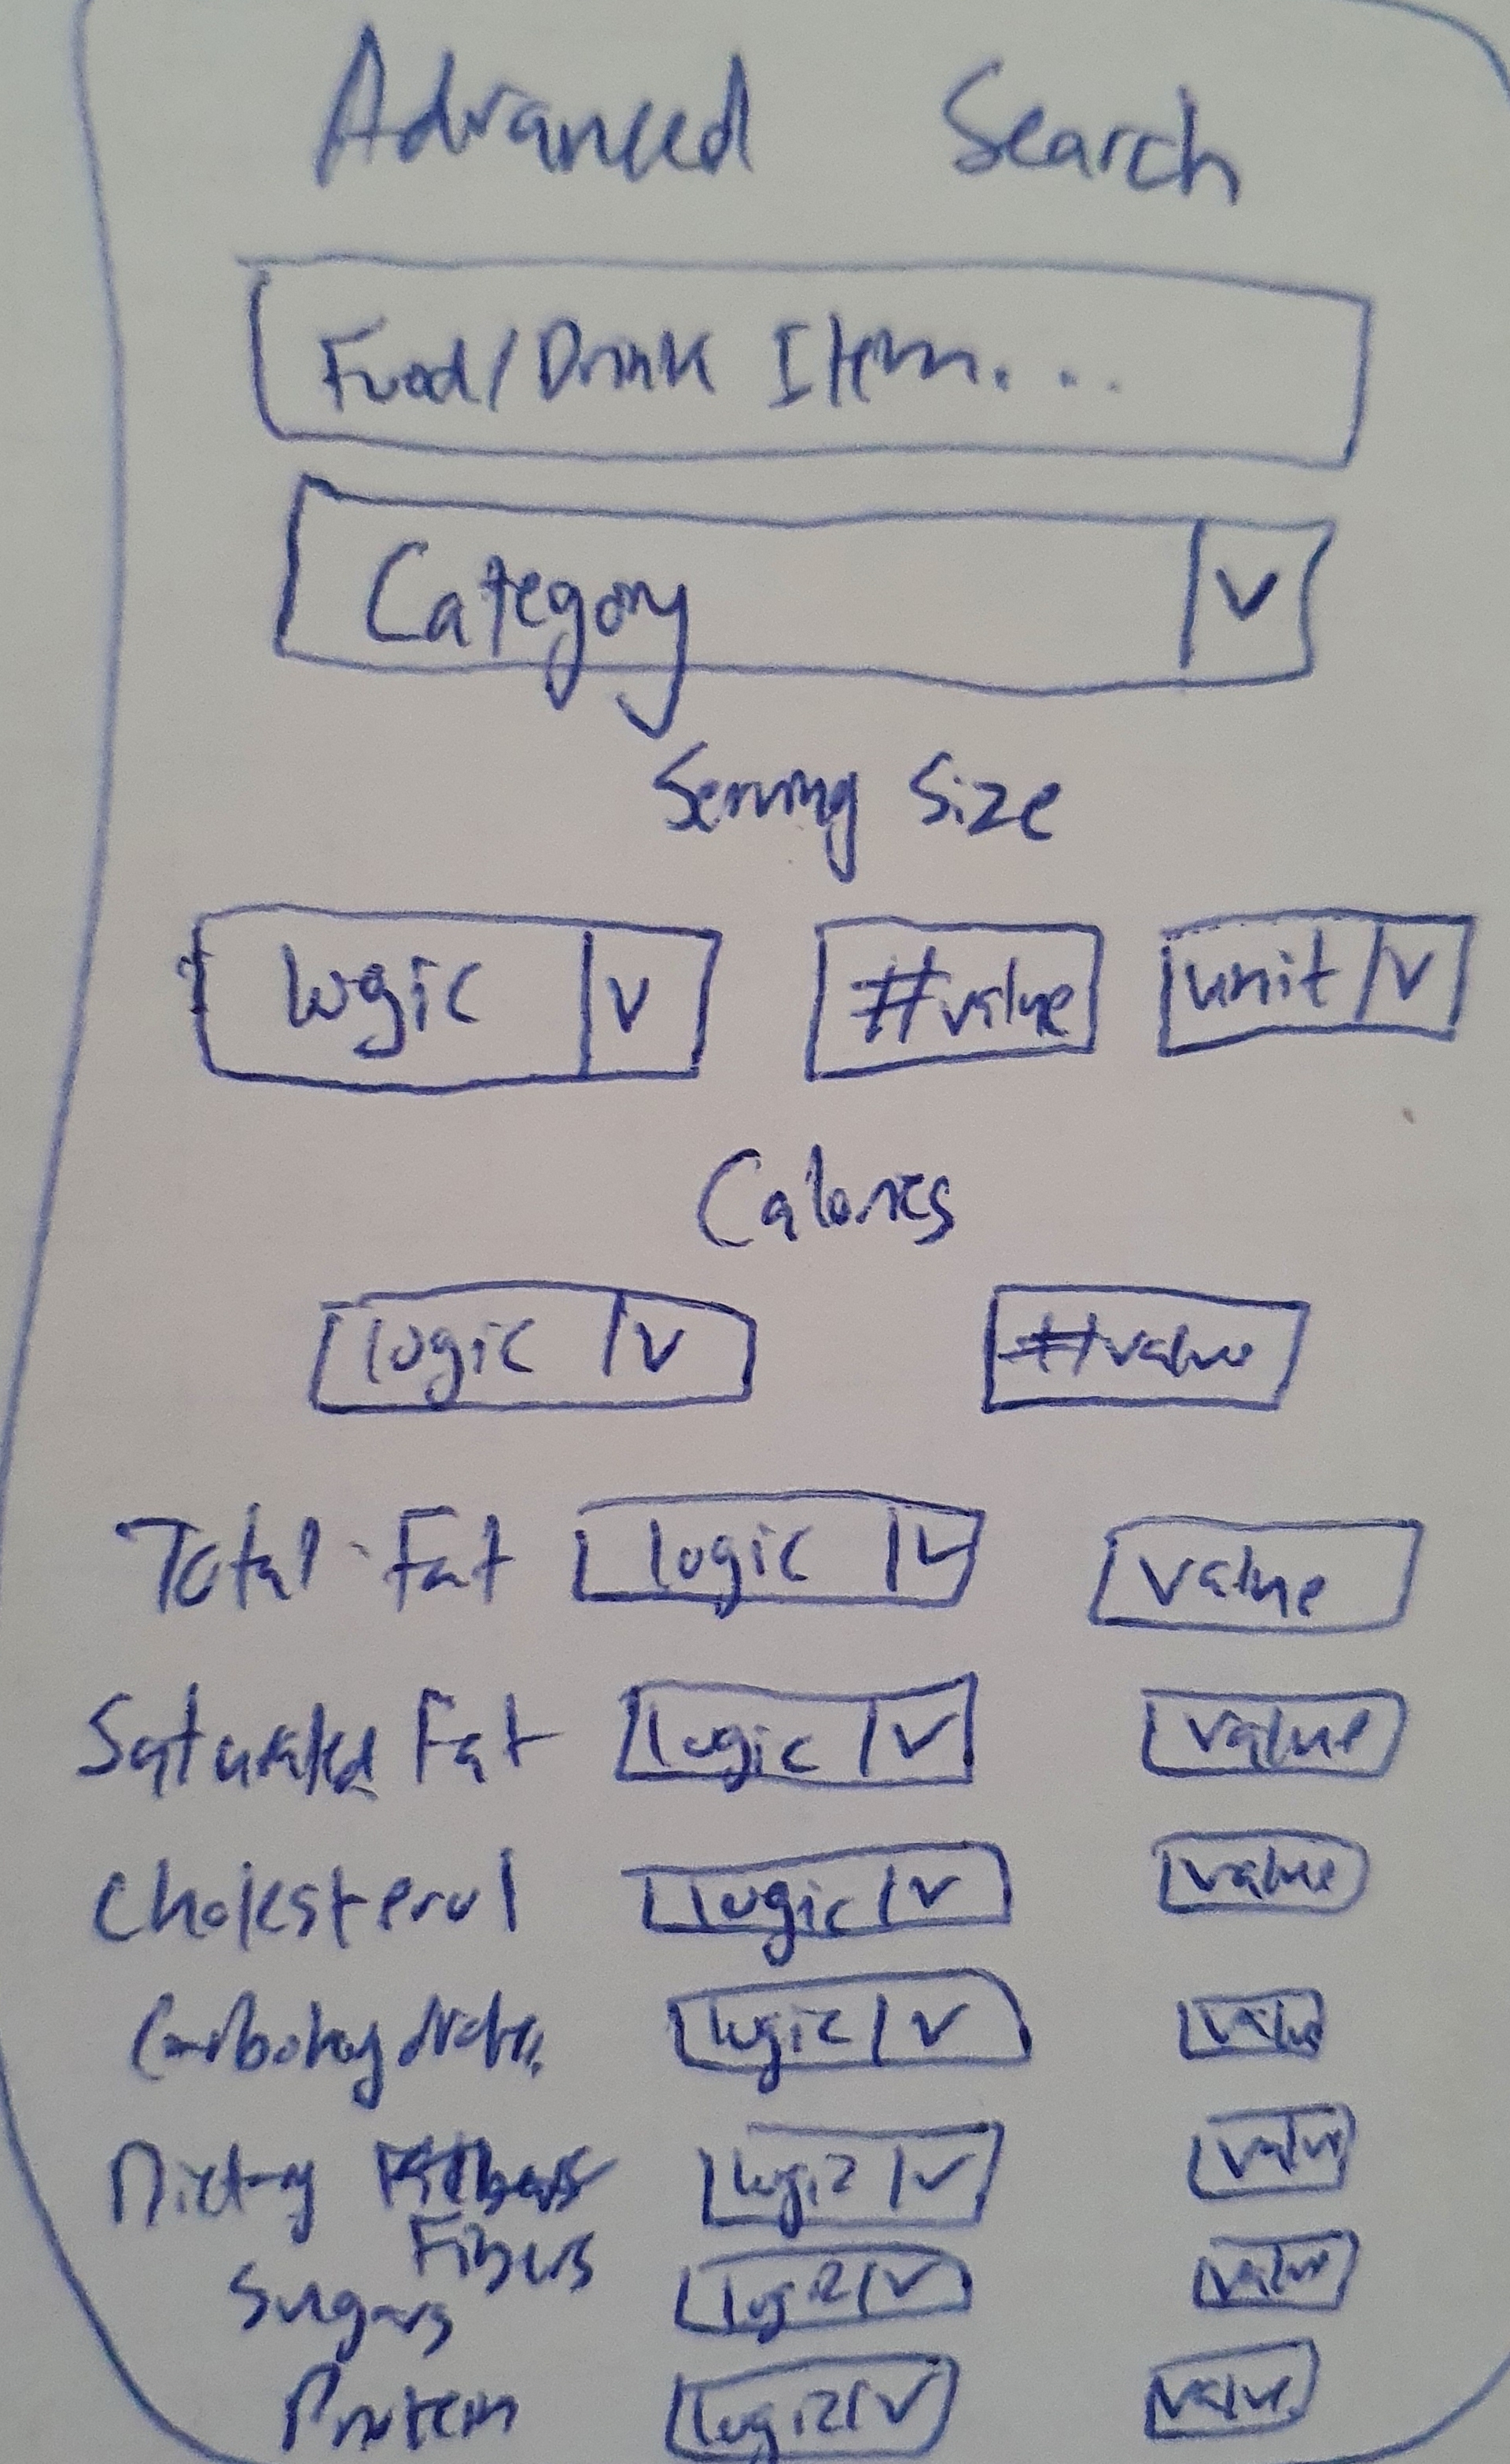 Advanced Search
Food/Drink Item...
Category V
Serving Size
logic V #value unit V
Calories
logic V #value
Total Fat logic V value
Saturated Fat logic V value
Cholesterol logic V value
Carbohydrates logic V value
Dietary logic V value
Fibers
Sugars logic V value
Protein logic V value